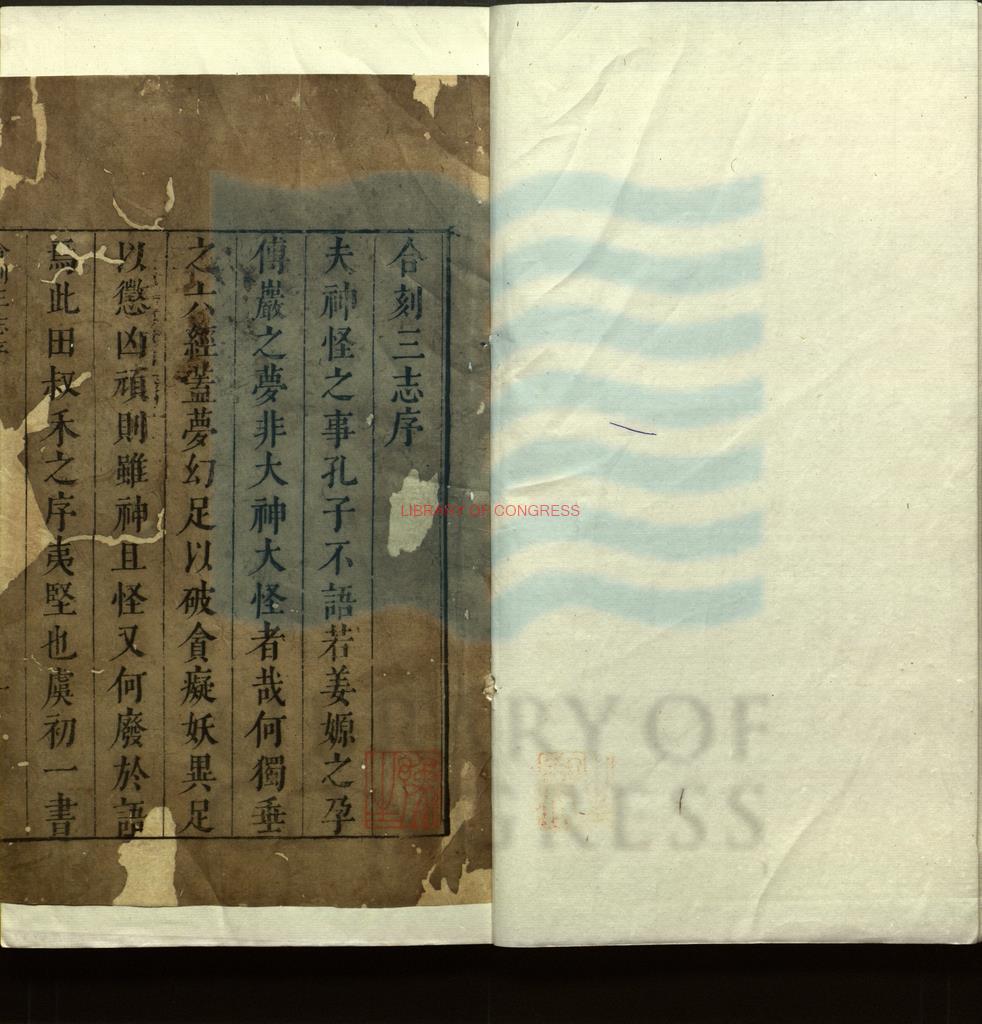 合刻三志序
夫神怪之事孔子不語若姜嫄之孕
傅巖之夢非大神大怪者哉何獨垂
之六經葢夢幻足以破貪癡妖異足
以懲凶頑則雖神且怪又何廢於語
焉此田叔禾之序夷堅也虞初一書
LIBRARY OF CONGRESS